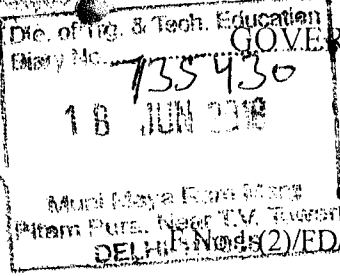 Dte. of Trg. & Tech. Education
GOVER
Diary No. 735430
18 JUN 2018
Muni Maya Ram Marg
Pitam Pura, Near T.V. Tower
DELHI
(2)/ED/